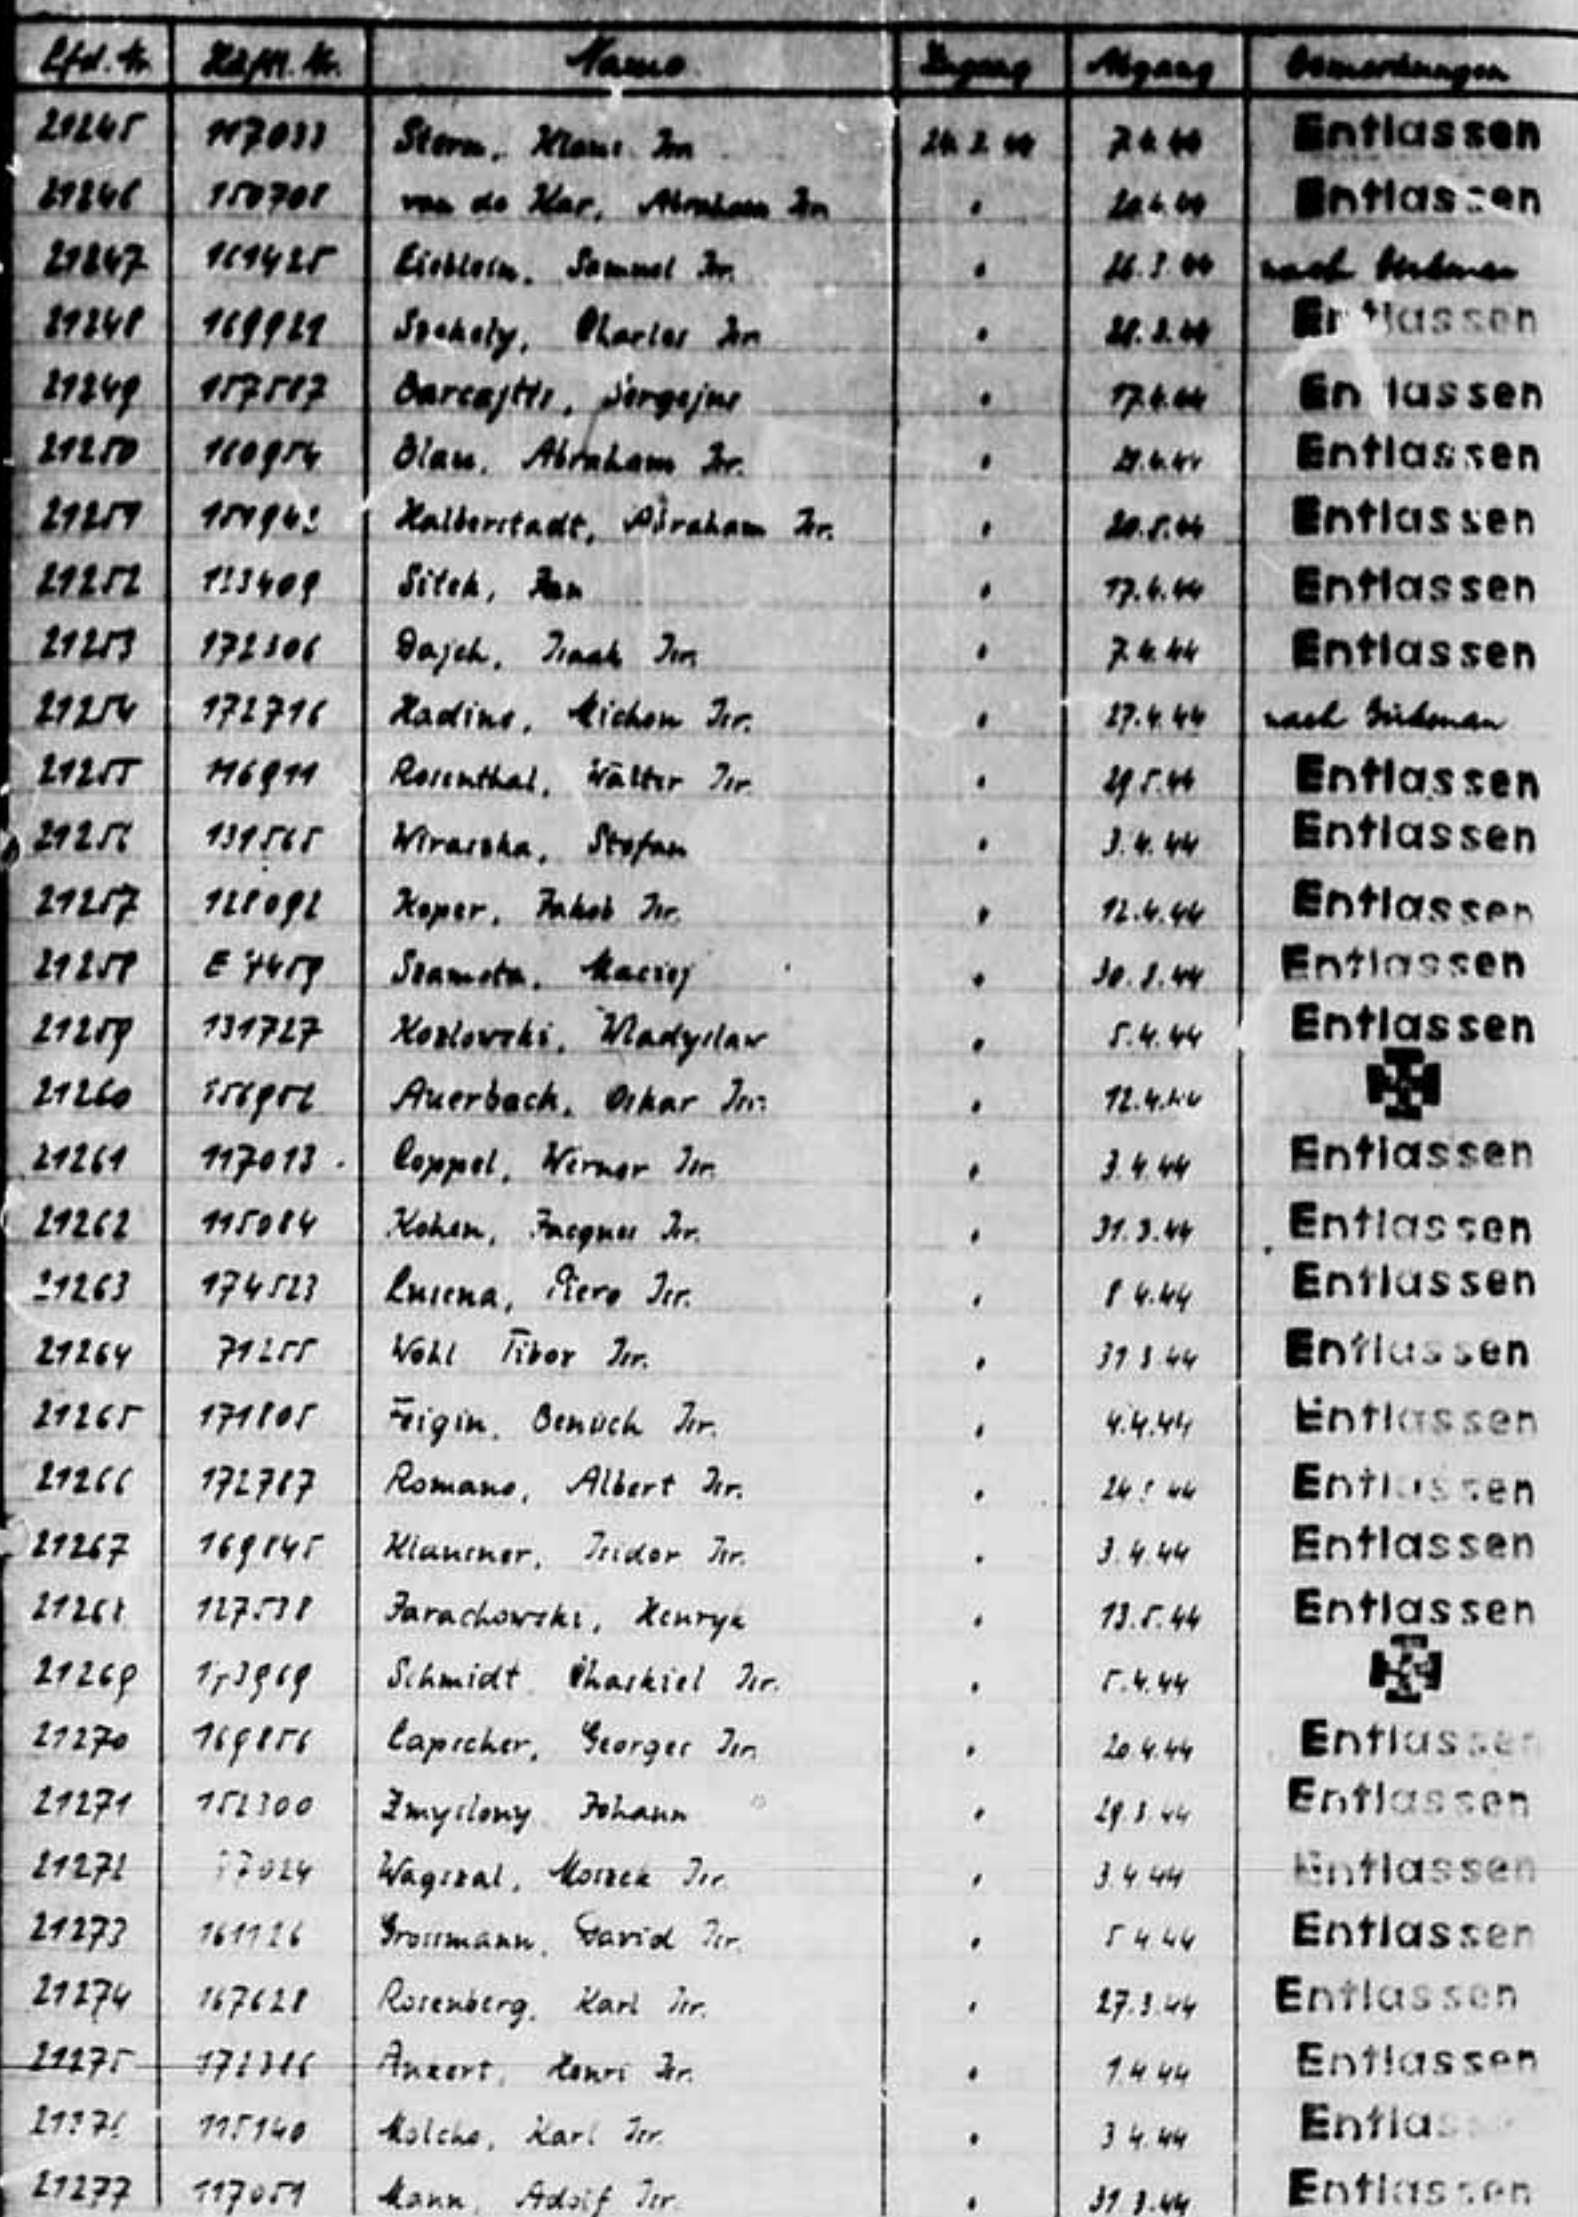 Lfd. Nr. Häftl. Nr. Name Zugang Abgang Bemerkungen
21245 117033 Stern, Klaus Isr. 24.3.44 7.4.44 Entlassen
21246 150708 van de Kar, Abraham Isr. " 20.4.44 Entlassen
21247 161425 Samuel Isr. " 26.3.44 nach Birkenau
21248 169921 Szekely, Charles Isr. " 28.3.44 Entlassen
21249 157587 " 17.4.44 Entlassen
21250 160954 Blau, Abraham Isr. " Entlassen
21251 Halberstadt, Abraham Isr. " 20.5.44 Entlassen
21252 123409 Sitek, Jan " 17.4.44 Entlassen
21253 172306 Dajch, Isaak Isr. " 7.4.44 Entlassen
21254 172716 Kadine, Michon Isr. " 27.4.44 nach Birkenau
21255 116911 Rosenthal, Walter Isr. " 29.5.44 Entlassen
21256 131565 Wiraszka, Stefan " 3.4.44 Entlassen
21257 128092 Koper, Jakob Isr. " 12.4.44 Entlassen
21258 Szamota, Maciej " 30.3.44 Entlassen
21259 131727 Kozlowski, Wladyslaw " 5.4.44 Entlassen
21260 Auerbach, Oskar Isr. " 12.4.44
21261 117013 Coppel, Werner Isr. " 3.4.44 Entlassen
21262 115084 Kohen, Jacques Isr. " 31.3.44 Entlassen
21263 174523 Lusena, Piero Isr. " 8.4.44 Entlassen
21264 71255 Wohl Tibor Isr. " 31.3.44 Entlassen
21265 171805 Feigin, Benuch Isr. " 4.4.44 Entlassen
21266 172787 Romano, Albert Isr. " Entlassen
21267 169845 Klausner, Isidor Isr. " 3.4.44 Entlassen
21268 127538 Jarachowski, Henryk " 13.5.44 Entlassen
21269 Schmidt Chaskiel Isr. " 5.4.44
21270 169856 Capscher, Georges Isr. " 20.4.44 Entlassen
21271 152300 Zmyslony Johann " 29.3.44 Entlassen
21272 Wagszal, Moszek Isr. " 3.4.44 Entlassen
21273 161126 Grossmann, David Isr. " 5.4.44 Entlassen
21274 167628 Rosenberg, Karl Isr. " 27.3.44 Entlassen
21275 172386 Henri Isr. " 1.4.44 Entlassen
21276 115140 Molcho, Karl Isr. " 3.4.44
21277 117051 Mann, Adolf Isr. " 31.3.44 Entlassen